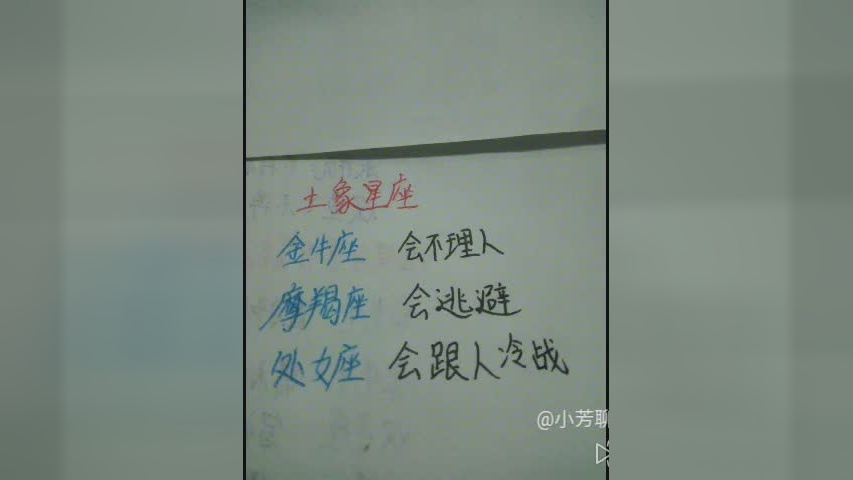 土象星座
金牛座 会不理人
摩羯座 会逃避
处女座 会跟人冷战
@小芳聊